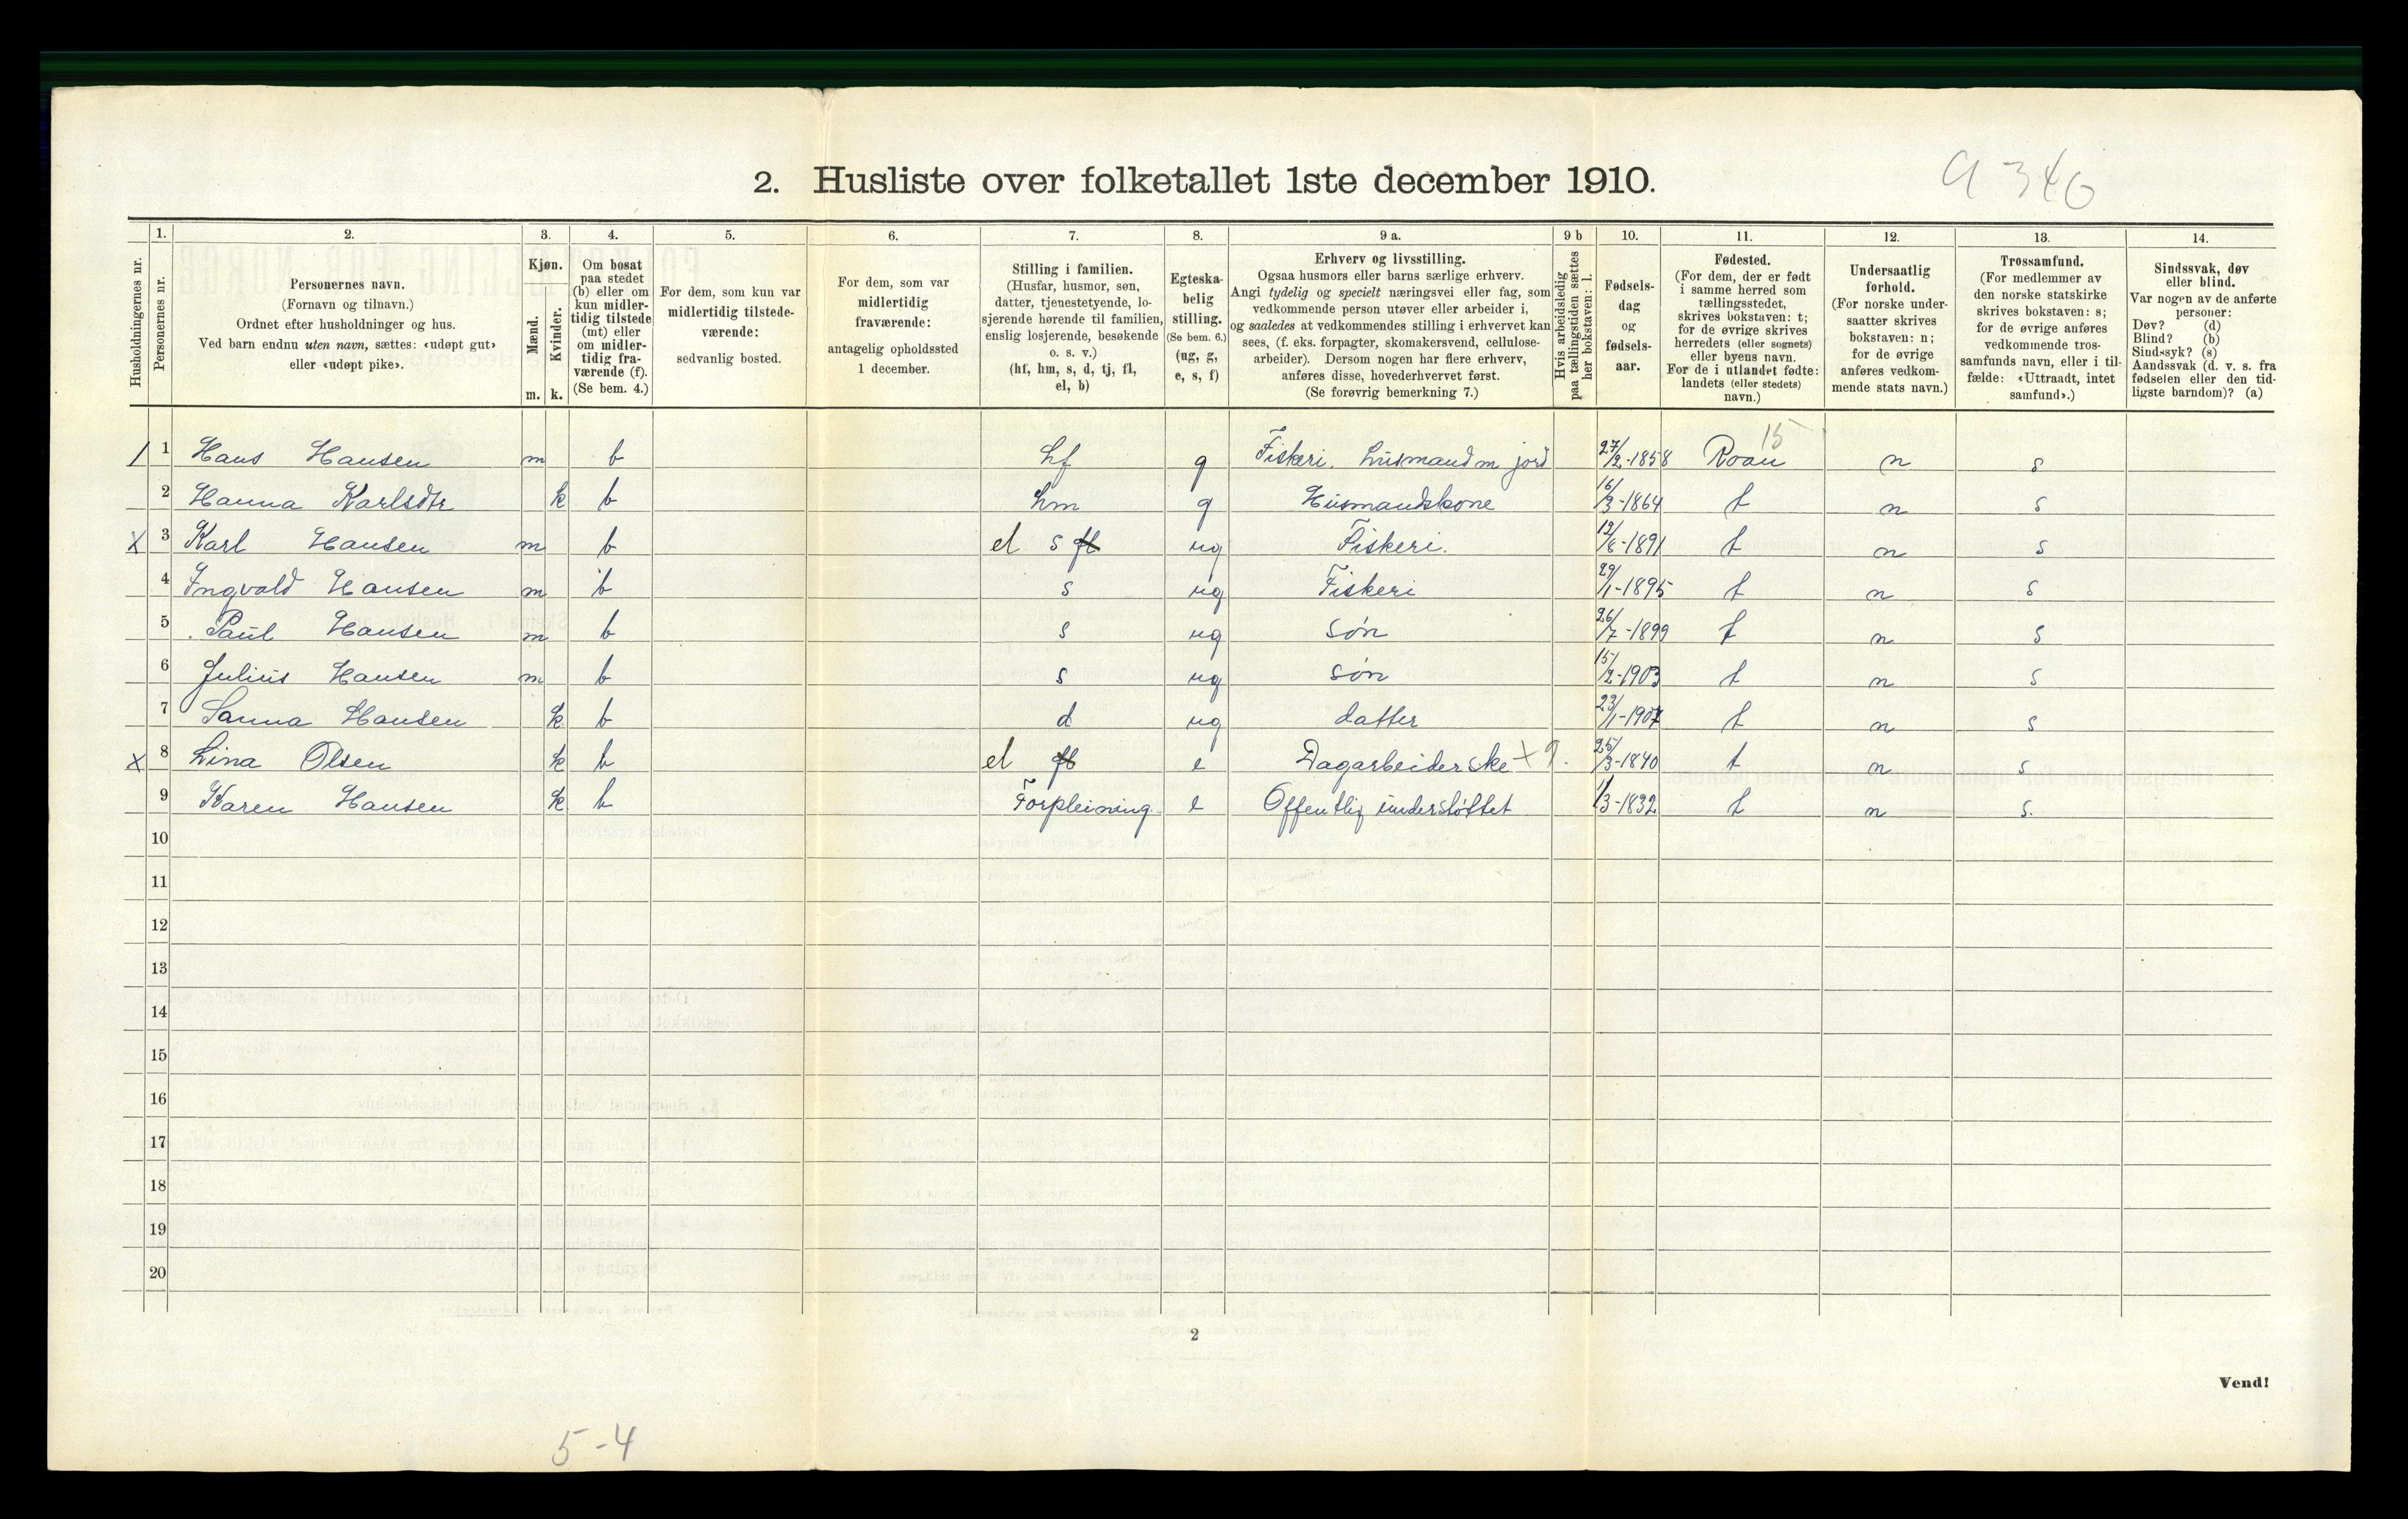 a 346
2. Husliste over folketallet 1ste december 1910.
Husholdningernes nr.
1. Personernes nr.
2. Personernes navn.
(Fornavn og tilnavn.)
Ordnet efter husholdninger og hus.
Ved barn endnu uten navn, sættes: «udøpt gut»
eller «udøpt pike».
3. Kjøn.
Mænd. m.
Kvinder. k.
4. Om bosat
paa stedet
(b) eller om
kun midler-
tidig tilstede
(mt) eller
om midler-
tidig fra-
værende (f).
(Se bem. 4.)
5. For dem, som kun var
midlertidig tilstede-
værende:
sedvanlig bosted.
6. For dem, som var
midlertidig
fraværende:
antagelig opholdssted
1 december.
7. Stilling i familien.
(Husfar, husmor, søn,
datter, tjenestetyende, lo-
sjerende hørende til familien,
enslig losjerende, besøkende
o. s. v.)
(hf, hm, s, d, tj, fl,
el, b)
8. Egteska-
belig
stilling.
(Se bem. 6.)
(ug, g,
e, s, f)
9 a. Erhverv og livsstilling.
Ogsaa husmors eller barns særlige erhverv.
Angi tydelig og specielt næringsvei eller fag, som
vedkommende person utøver eller arbeider i,
og saaledes at vedkommendes stilling i erhvervet kan
sees, (f. eks. forpagter, skomakersvend, cellulose-
arbeider). Dersom nogen har flere erhverv,
anføres disse, hovederhvervet først.
(Se forøvrig bemerkning 7.)
9 b Hvis arbeidsledig
paa tællingstiden sættes
her bokstaven: l.
10. Fødsels-
dag
og
fødsels-
aar.
11. Fødested.
(For dem, der er født
i samme herred som
tællingsstedet,
skrives bokstaven: t;
for de øvrige skrives
herredets (eller sognets)
eller byens navn.
For de i utlandet fødte:
landets (eller stedets)
navn.)
12. Undersaatlig
forhold.
(For norske under-
saatter skrives
bokstaven: n;
for de øvrige
anføres vedkom-
mende stats navn.)
13. Trossamfund.
(For medlemmer av
den norske statskirke
skrives bokstaven: s;
for de øvrige anføres
vedkommende tros-
samfunds navn, eller i til-
fælde: «Uttraadt, intet
samfund».)
14. Sindssvak, døv
eller blind.
Var nogen av de anførte
personer:
Døv? (d)
Blind? (b)
Sindssyk? (s)
Aandssvak (d. v. s. fra
fødselen eller den tid-
ligste barndom)? (a)
15
1 1 Hans Hansen m b hf g Fiskeri. Husmand m jord 27/2-1858 Roan n s
2 Hanna Karlsdtr k b hm g Husmandskone 16/3-1864 t n s
x 3 Karl Hansen m b el s fl ug Fiskeri. 12/6-1891 t n s
4 Ingvald Hansen m b s ug Fiskeri 29/1-1895 t n s
5 Paul Hansen m b s ug søn 26/7-1899 t n s
6 Julius Hansen m b s ug søn 15/2-1903 t n s
7 Sanna Hansen k b d ug datter 23/1-1907 t n s
x 8 Lina Olsen k b el fl e Dagarbeiderske 25/3-1840 t n s
9 Karen Hansen k b Forpleining. e Offentlig understøttet 1/3-1832 t n s.
10
11
12
13
14
15
16
17
18
19
20
2
Vend!
5-4